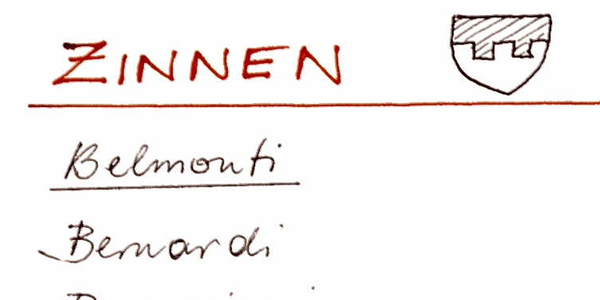 ZINNEN
Belmonti
Bernardi